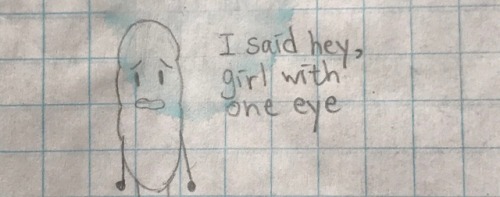 I said hey,
girl with
one eye